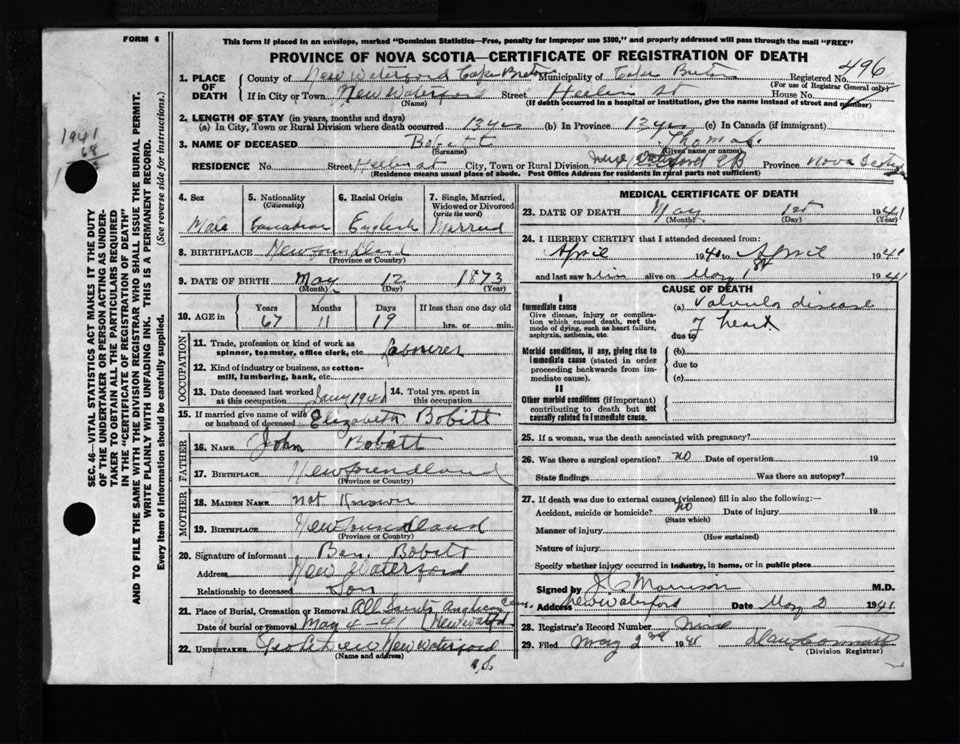 FORM 6
This form if placed in an envelope, marked "Dominion Statistics—Free, penalty for improper use $300," and properly addressed will pass through the mail "FREE"
PROVINCE OF NOVA SCOTIA—CERTIFICATE OF REGISTRATION OF DEATH
1. PLACE OF DEATH
County of New Waterford Cape Breton Municipality of Cape Breton Registered No. 496
(For use of Registrar General only)
If in City or Town New Waterford Street St House No.
(Name) (If death occurred in a hospital or institution, give the name instead of street and number)
2. LENGTH OF STAY (in years, months and days)
(a) In City, Town or Rural Division where death occurred 13 yrs (b) In Province 13 yrs (c) In Canada (if immigrant)
3. NAME OF DECEASED Bobett Thomas.
(Surname) (Given name or names)
RESIDENCE House No. Street st City, Town or Rural Division New Waterford CB Province Nova Scotia
(Residence means usual place of abode. Post Office Address for residents in rural parts not sufficient)
4. Sex
Male
5. Nationality
(Citizenship)
Canadian
6. Racial Origin
English
7. Single, Married, Widowed or Divorced
(write the word)
Married
8. BIRTHPLACE Newfoundland
(Province or Country)
9. DATE OF BIRTH May 12 1873
(Month) (Day) (Year)
10. AGE in
Years Months Days If less than one day old
67 11 19 hrs. or min.
OCCUPATION
11. Trade, profession or kind of work as spinner, teamster, office clerk, etc. Labourer
12. Kind of industry or business, as cotton-mill, lumbering, bank, etc.
13. Date deceased last worked at this occupation Jany 1941
14. Total yrs. spent in this occupation
15. If married give name of wife or husband of deceased Elizabeth Bobitt
FATHER
16. NAME John Bobatt
17. BIRTHPLACE Newfoundland
(Province or Country)
MOTHER
18. MAIDEN NAME not Known
19. BIRTHPLACE Newfoundland
(Province or Country)
20. Signature of informant Ben. Bobett
Address New Waterford
Relationship to deceased Son
21. Place of Burial, Cremation or Removal All Saints Anglican Cem.
Date of burial or removal May 4-41
22. UNDERTAKER New Waterford
(Name and address)
MEDICAL CERTIFICATE OF DEATH
23. DATE OF DEATH May 1st 1941
(Month) (Day) (Year)
24. I HEREBY CERTIFY that I attended deceased from:
April 1940 to April 1941
and last saw him alive on May 1st 1941
CAUSE OF DEATH
I
Immediate cause
Give disease, injury or complication which caused death, not the mode of dying, such as heart failure, asphyxia, asthenia, etc.
(a) Valvular disease
of heart
due to
Morbid conditions, if any, giving rise to immediate cause (stated in order proceeding backwards from immediate cause).
(b)
due to
(c)
II
Other morbid conditions (if important) contributing to death but not causally related to immediate cause.
25. If a woman, was the death associated with pregnancy?
26. Was there a surgical operation? no Date of operation 19
State findings Was there an autopsy?
27. If death was due to external causes (violence) fill in also the following:—
Accident, suicide or homicide? no Date of injury 19
(State which)
Manner of injury
(How sustained)
Nature of injury
Specify whether injury occurred in industry, in home, or in public place
Signed by J C Morrison M.D.
Address New Waterford Date May 2 1941
28. Registrar's Record Number
29. Filed May 2nd 19
(Division Registrar)
1941
68
SEC. 46—VITAL STATISTICS ACT MAKES IT THE DUTY
OF THE UNDERTAKER OR PERSON ACTING AS UNDER-
TAKER TO OBTAIN ALL THE PARTICULARS REQUIRED
IN THE "CERTIFICATE OF REGISTRATION OF DEATH"
AND TO FILE THE SAME WITH THE DIVISION REGISTRAR WHO SHALL ISSUE THE BURIAL PERMIT.
WRITE PLAINLY WITH UNFADING INK. THIS IS A PERMANENT RECORD.
Every item of information should be carefully supplied. (See reverse side for instructions.)